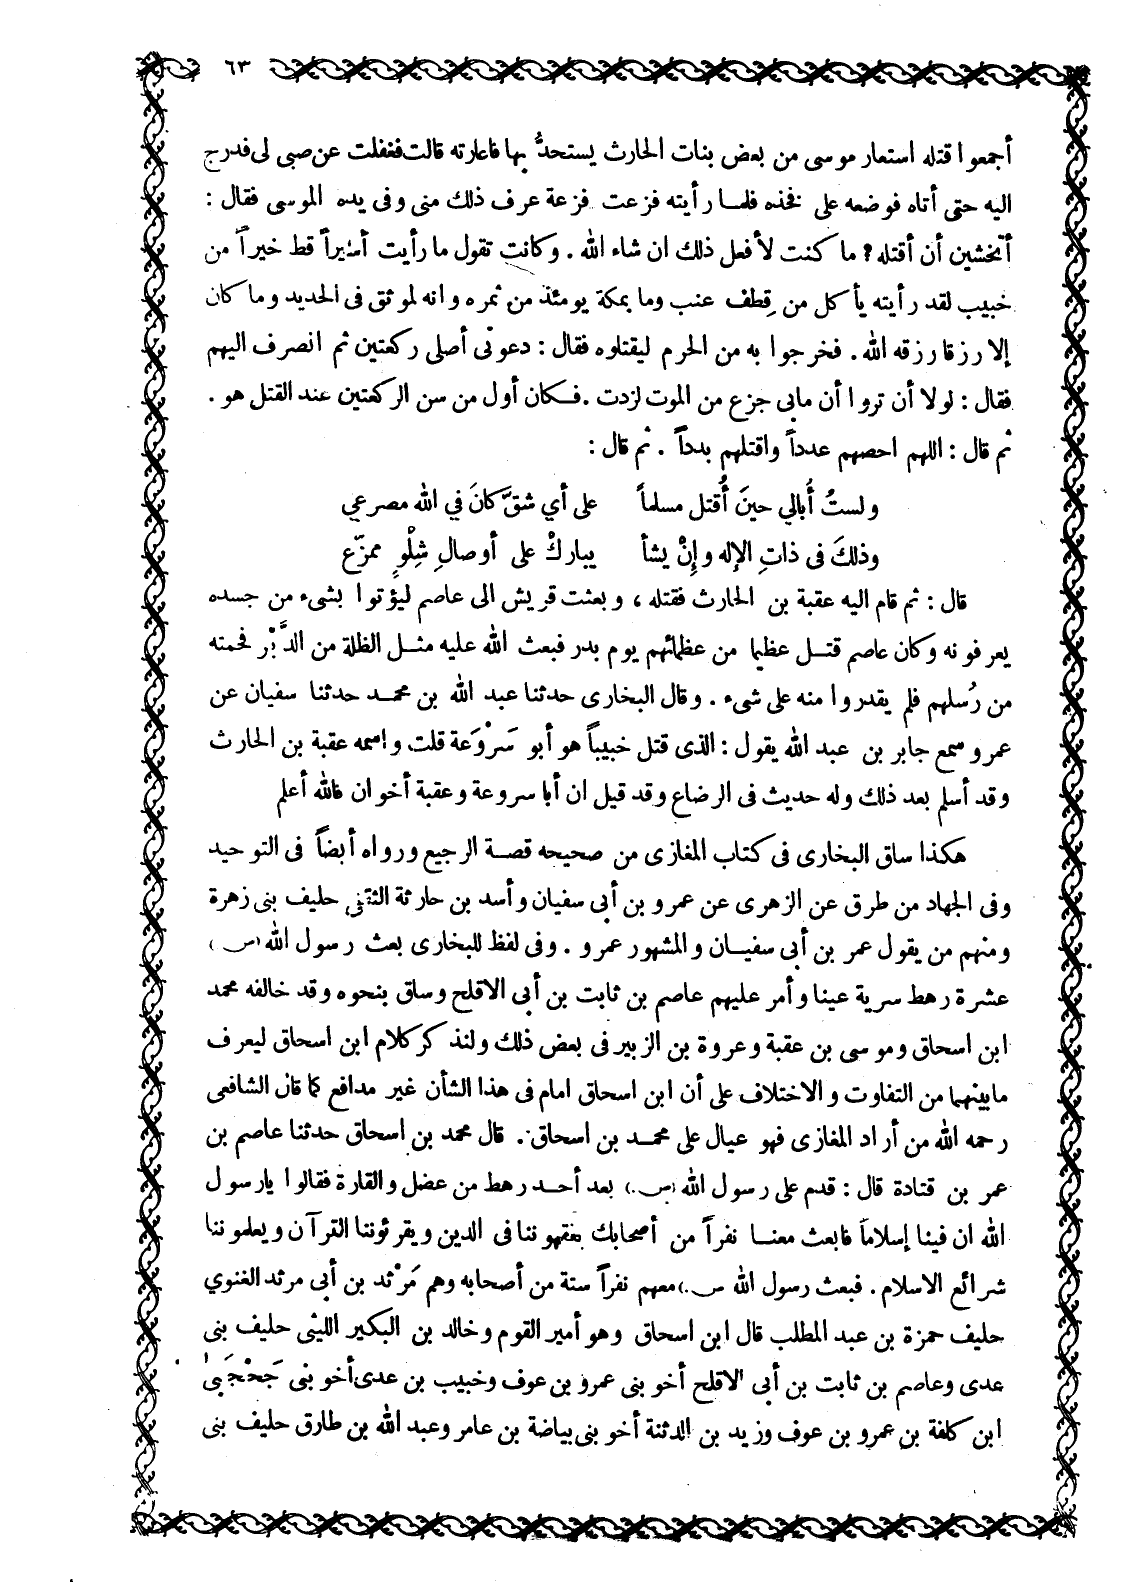 ٦٣
أجمعوا قتله استعار موسى من بعض بنات الحارث يستحدُّ بها فاعارته قالت فغفلت عن صبى لى فدرج
اليه حتى أتاه فوضعه على فخذه فلما رأيته فزعت فزعة عرف ذلك منى وفى يده الموسى فقال :
أتخشين أن أقتله ? ما كنت لأفعل ذلك ان شاء الله . وكانت تقول ما رأيت أسيراً قط خيراً من
خبيب لقد رأيته يأكل من قِطف عنب وما بمكة يومئذ من ثمره وانه لموثق فى الحديد وما كان
إلا رزقا رزقه الله . فخرجوا به من الحرم ليقتلوه فقال : دعونى أصلى ركعتين ثم انصرف اليهم
فقال : لولا أن تروا أن مابى جزع من الموت لزدت . فكان أول من سن الركعتين عند القتل هو .
ثم قال : اللهم احصهم عدداً واقتلهم بدداً . ثم قال :
ولستُ أُبالي حينَ أُقتل مسلماً على أي شقّ كانَ في الله مصرعي
وذلكَ فى ذاتِ الإله وإنْ يشأ يباركْ على أوصالِ شِلْوٍ ممزّع
قال : ثم قام اليه عقبة بن الحارث فقتله ، وبعثت قريش الى عاصم ليؤتوا بشىء من جسده
يعرفونه وكان عاصم قتل عظيما من عظمائهم يوم بدر فبعث الله عليه مثل الظلة من الدَّبْر فحمته
من رُسلهم فلم يقدروا منه على شىء . وقال البخارى حدثنا عبد الله بن محمد حدثنا سفيان عن
عمرو سمع جابر بن عبد الله يقول : الذى قتل خبيباً هو أبو سَرْوَعة قلت واسمه عقبة بن الحارث
وقد أسلم بعد ذلك وله حديث فى الرضاع وقد قيل ان أبا سروعة وعقبة أخوان فالله أعلم
هكذا ساق البخارى فى كتاب المغازى من صحيحه قصة الرجيع ورواه أيضاً فى التوحيد
وفى الجهاد من طرق عن الزهرى عن عمرو بن أبى سفيان وأسد بن حارثة الثقفى حليف بنى زهرة
ومنهم من يقول عمر بن أبى سفيان والمشهور عمرو . وفى لفظ للبخارى بعث رسول الله (ص)
عشرة رهط سرية عينا وأمر عليهم عاصم بن ثابت بن أبى الاقلح وساق بنحوه وقد خالفه محمد
ابن اسحاق وموسى بن عقبة وعروة بن الزبير فى بعض ذلك ولنذكر كلام ابن اسحاق ليعرف
مابينهما من التفاوت والاختلاف على أن ابن اسحاق امام فى هذا الشأن غير مدافع كما قال الشافعى
رحمه الله من أراد المغازى فهو عيال على محمد بن اسحاق . قال محمد بن اسحاق حدثنا عاصم بن
عمر بن قتادة قال : قدم على رسول الله (ص) بعد أحد رهط من عضل والقارة فقالوا يارسول
الله ان فينا إسلاماً فابعث معنا نفراً من أصحابك يفقهوننا فى الدين ويقرئوننا القرآن ويعلموننا
شرائع الاسلام . فبعث رسول الله (ص) معهم نفراً ستة من أصحابه وهم مَرْثد بن أبى مرثد الغنوي
حليف حمزة بن عبد المطلب قال ابن اسحاق وهو أمير القوم وخالد بن البكير الليثى حليف بنى
عدى وعاصم بن ثابت بن أبى الاقلح أخو بنى عمرو بن عوف وخبيب بن عدى أخو بنى جَحْجَبى
ابن كلفة بن عمرو بن عوف وزيد بن الدثنة أخو بنى بياضة بن عامر وعبد الله بن طارق حليف بنى